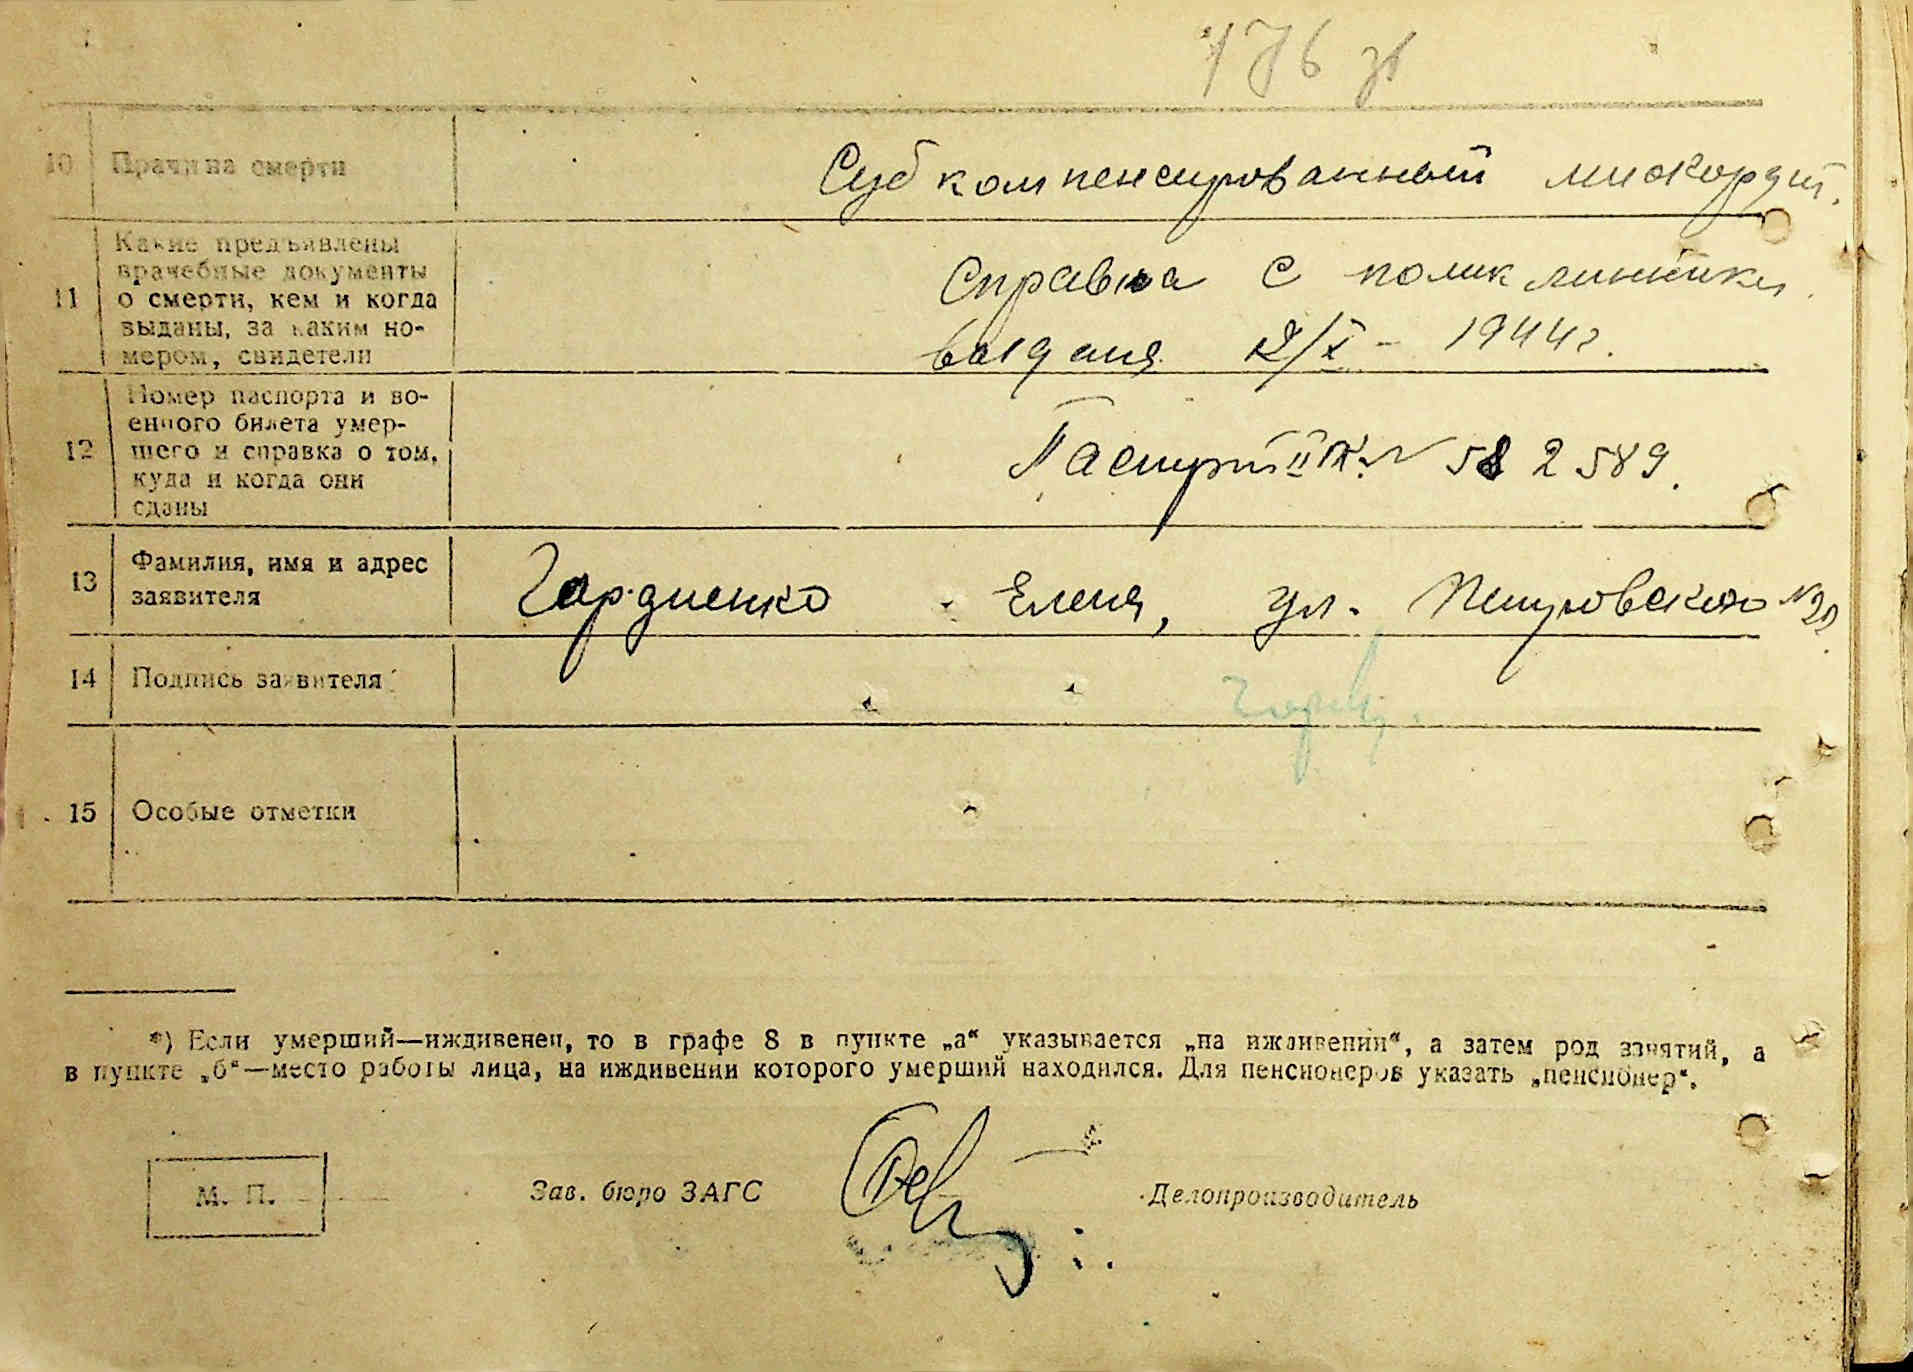 176
10 Причина смерти Субкомпенсированный миокардит.
11 Какие предъявлены
врачебные документы
о смерти, кем и когда
выданы, за каким но-
мером, свидетели
Справка с поликлиники
выдана 2/X - 1944г.
12 Номер паспорта и во-
енного билета умер-
шего и справка о том,
куда и когда они
сданы
Паспорт 582589.
13 Фамилия, имя и адрес
заявителя
Гордиенко Елена, ул. Петровского №
14 Подпись заявителя
15 Особые отметки
*) Если умерший—иждивенец, то в графе 8 в пункте „а“ указывается „на иждивении“, а затем род занятий, а
в пункте „б“—место работы лица, на иждивении которого умерший находился. Для пенсионеров указать „пенсионер“.
М. П. Зав. бюро ЗАГС Делопроизводитель